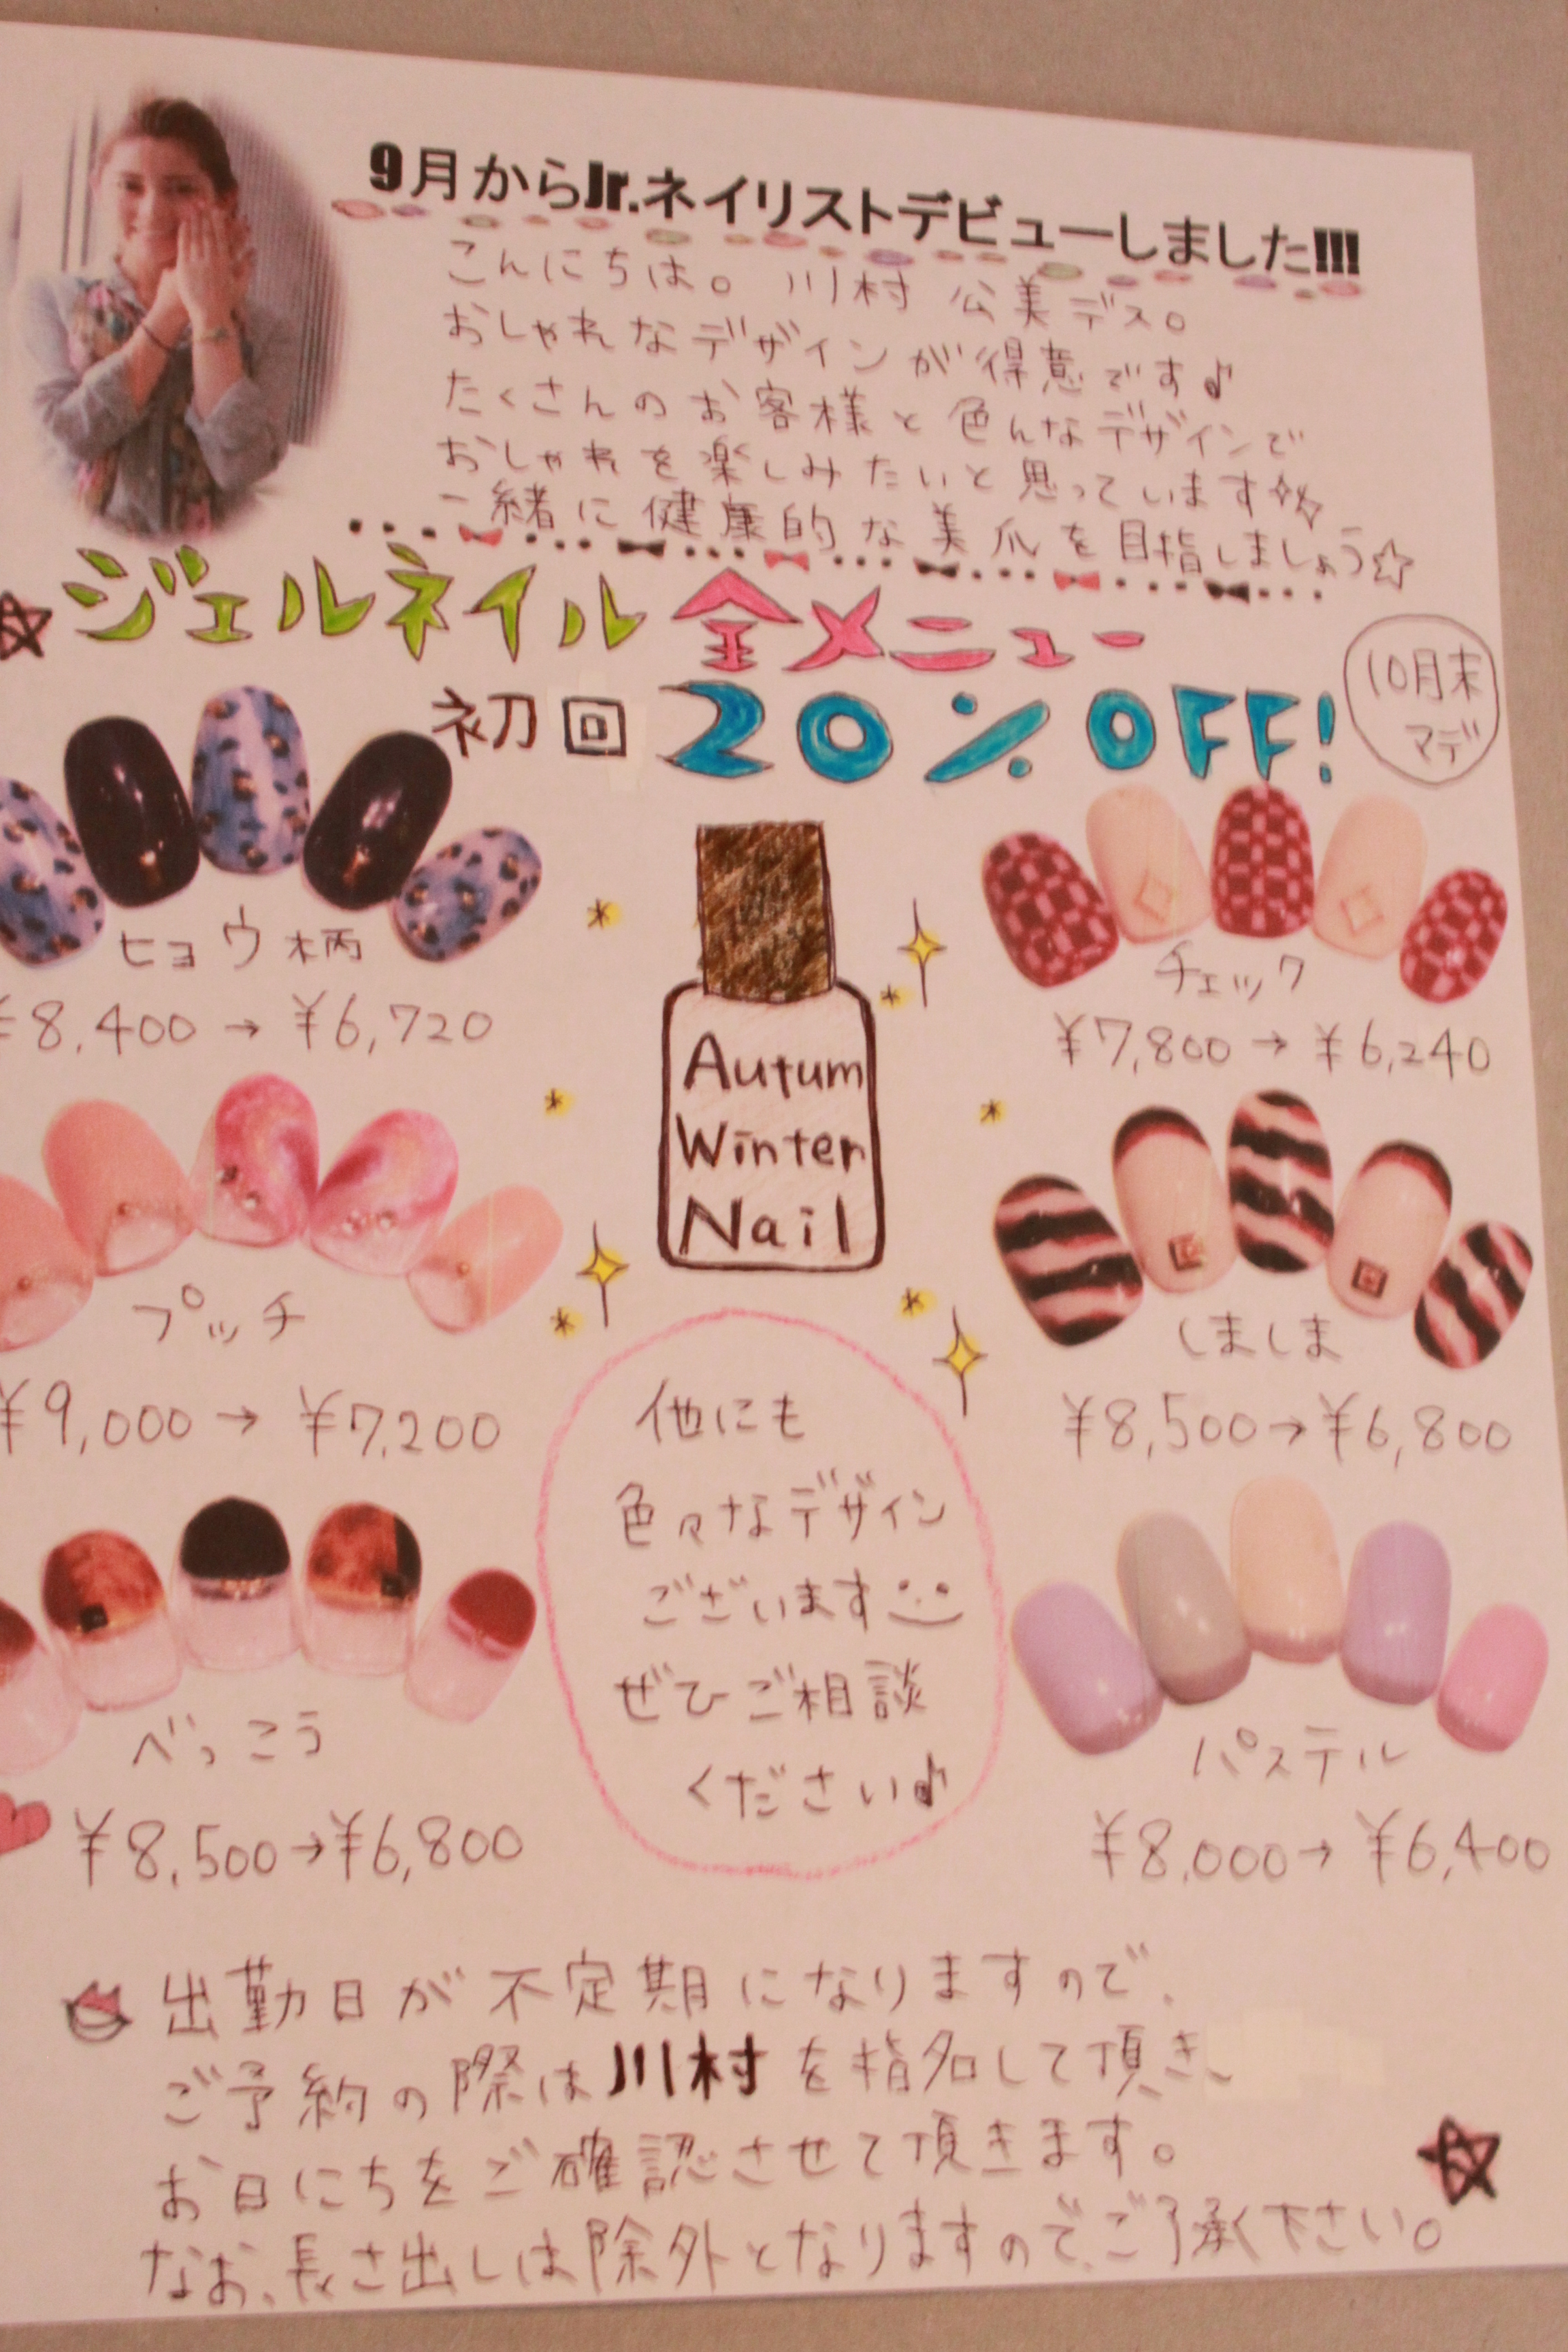 9月からJr.ネイリストデビューしました!!!
こんにちは。川村 公美デス。
おしゃれなデザインが得意です♪
たくさんのお客様と色んなデザインで
おしゃれを楽しみたいと思っています☆☆
一緒に健康的な美爪を目指しましょう☆
ジェルネイル全メニュー
初回20%OFF!
10月末
マデ
ヒョウ柄
¥8,400→¥6,720
チェック
¥7,800→¥6,240
Autum
Winter
Nail
プッチ
¥9,000→¥7,200
しましま
¥8,500→¥6,800
他にも
色々なデザイン
ございます
ぜひご相談
ください♪
べっこう
¥8,500→¥6,800
パステル
¥8,000→¥6,400
出勤日が不定期になりますので、
ご予約の際は川村を指名して頂き、
お日にちをご確認させて頂きます。
なお、長さ出しは除外となりますので、ご了承下さい。